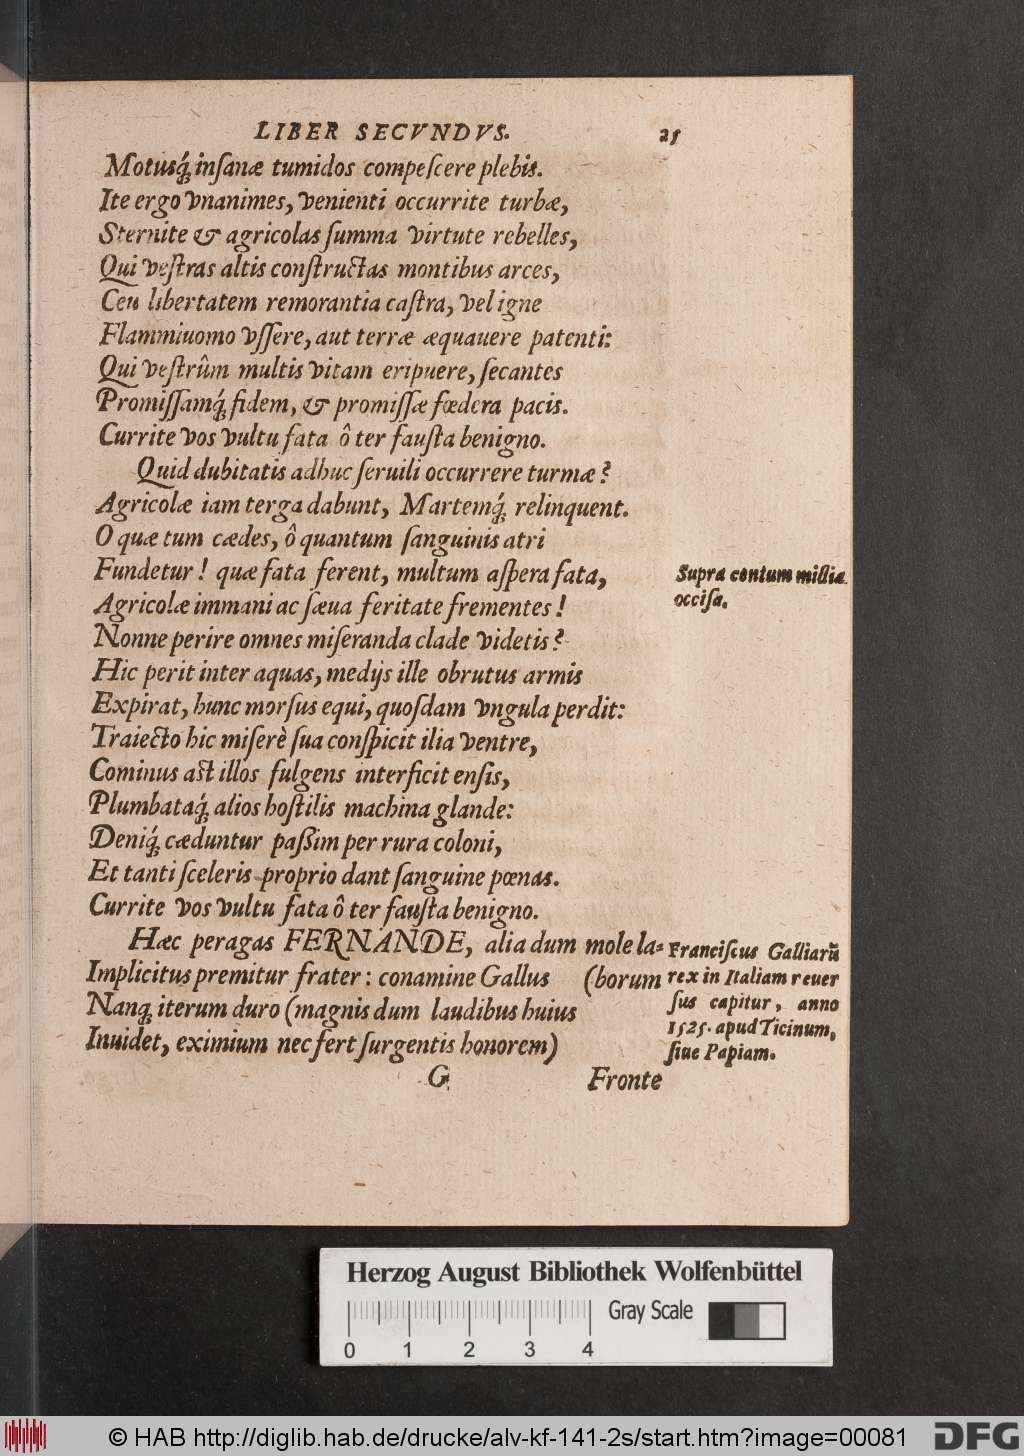 LIBER SECVNDVS. 25
Motusq́; inſanæ tumidos compeſcere plebis.
Ite ergo vnanimes, venienti occurrite turbæ,
Sternite & agricolas ſumma virtute rebelles,
Qui veſtras altis conſtructas montibus arces,
Ceu libertatem remorantia caſtra, vel igne
Flammiuomo vſſere, aut terræ æquauere patenti:
Qui veſtrûm multis vitam eripuere, ſecantes
Promiſſamq́; fidem, & promiſſæ fœdera pacis.
Currite vos vultu fata ô ter fauſta benigno.
Quid dubitatis adhuc ſeruili occurrere turmæ?
Agricolæ iam terga dabunt, Martemq́; relinquent.
O quæ tum cædes, ô quantum ſanguinis atri
Fundetur! quæ fata ferent, multum aſpera fata,
Supra centum millia
occiſa.
Agricolæ immani ac ſæua feritate frementes!
Nonne perire omnes miſeranda clade videtis?
Hic perit inter aquas, medijs ille obrutus armis
Expirat, hunc morſus equi, quoſdam vngula perdit:
Traiecto hic miſerè ſua conſpicit ilia ventre,
Cominus aſt illos fulgens interficit enſis,
Plumbataq́; alios hoſtilis machina glande:
Deniq́; cæduntur paßim per rura coloni,
Et tanti ſceleris proprio dant ſanguine pœnas.
Currite vos vultu fata ô ter fauſta benigno.
Hæc peragas FERNANDE, alia dum mole la-
Implicitus premitur frater: conamine Gallus (borum
Nanq; iterum duro (magnis dum laudibus huius
Inuidet, eximium nec fert ſurgentis honorem)
Franciſcus Galliarū
rex in Italiam reuer
ſus capitur, anno
1525. apud Ticinum,
ſiue Papiam.
G Fronte
Herzog August Bibliothek Wolfenbüttel
Gray Scale
0 1 2 3 4
© HAB http://diglib.hab.de/drucke/alv-kf-141-2s/start.htm?image=00081
DFG